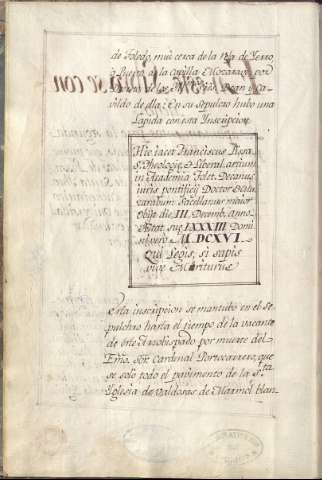 de Toledo, mui cerca de la Rexa de Yerro,
de la Capilla Mozarave por
y Ca-
vildo de ella: En su Sepulcro hubo una
Lapida con esta Inscripcion.
Hic iacet Franciscus Pissa
S. Theologiæ, & Liberal. artium
in Academia Tolet. Decanus,
iuris pontificij Doctor
zarabum Sacellanus maior
Obijt die III, Decemb. anno
Ætat. suæ LXXXIII Domi-
ni vero M.DCXVI.
Qui Legis, si sapis
vive Moriturus
Esta inscripcion se mantubo en el Se-
pulchro hasta el tiempo de la vacante
de este Arzobispado por muerte del
Emo. Sor. Cardenal Portocarrero, que
se solo todo el pavimento de la Sta.
Iglesia de Valdosas de Marmol blan-